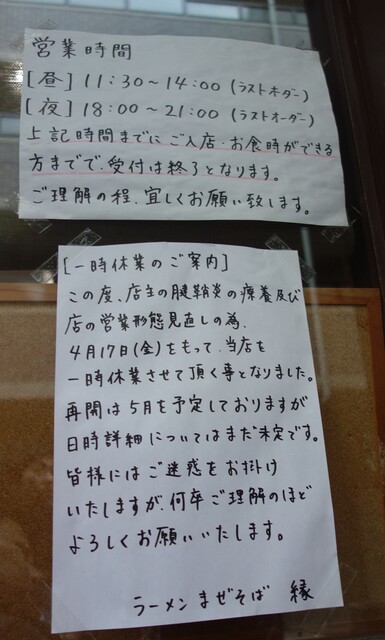 営業時間
[昼] 11:30～14:00 (ラストオーダー)
[夜] 18:00～21:00 (ラストオーダー)
上記時間までにご入店・お食時ができる
方までで、受付は終了となります。
ご理解の程、宜しくお願い致します。
[一時休業のご案内]
この度、店主の腱鞘炎の療養及び
店の営業形態見直しの為、
4月17日(金)をもって、当店を
一時休業させて頂く事となりました。
再開は5月を予定しておりますが
日時詳細についてはまだ未定です。
皆様にはご迷惑をお掛け
いたしますが、何卒ご理解のほど
よろしくお願いいたします。
ラーメン まぜそば 縁